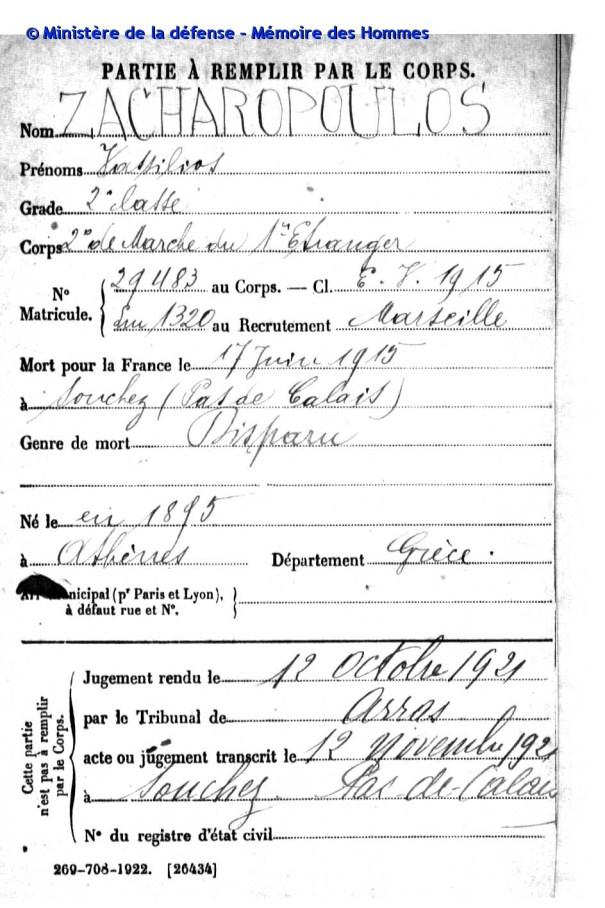 © Ministère de la défense - Mémoire des Hommes
PARTIE À REMPLIR PAR LE CORPS.
Nom ZACHAROPOULOS
Prénoms Vassilios
Grade 2e classe
Corps 2e de Marche du 1er Etranger
N° Matricule. 29483 au Corps. — Cl. E. V. 1915
1320 au Recrutement Marseille
Mort pour la France le 17 Juin 1915
à Souchez (Pas de Calais)
Genre de mort Disparu
Né le en 1895
à Athènes Département Grèce.
municipal (pr Paris et Lyon),
à défaut rue et N°.
Cette partie n'est pas à remplir par le Corps.
Jugement rendu le 12 Octobre 1921
par le Tribunal de Arras
acte ou jugement transcrit le 12 Novembre 1921
à Souchez Pas-de-Calais
N° du registre d'état civil
269-708-1922. [26434]